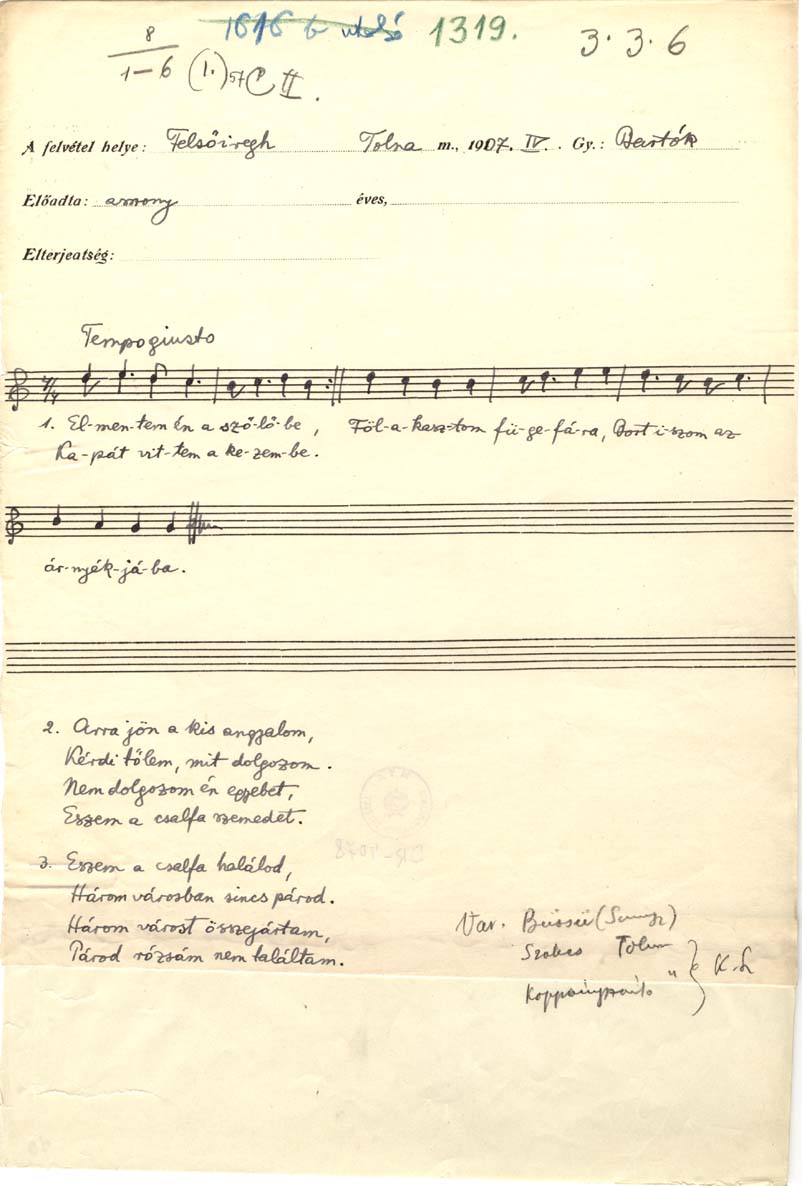 1616 b utolsó 1319. 3. 3. 6
8
1–6 (I.) 57 II.
A felvétel helye: Felsőiregh Tolna m., 1907. IV. Gy.: Bartók
Előadta: asszony éves,
Elterjeatség:
Tempo giusto
1. El-men-tem én a sző-lő-be, Föl-a-kasz-tom fü-ge-fá-ra, Bort i-szom az
Ka-pát vit-tem a ke-zem-be.
ár-nyék-já-ba.
2. Arra jön a kis angyalom,
Kérdi tőlem, mit dolgozom.
Nem dolgozom én egyebet,
Eszem a csalfa szemedet.
3. Eszem a csalfa halálod,
Három városban sincs párod.
Három várost összejártam,
Párod rózsám nem találtam.
Var. Büssü
Tolna
"